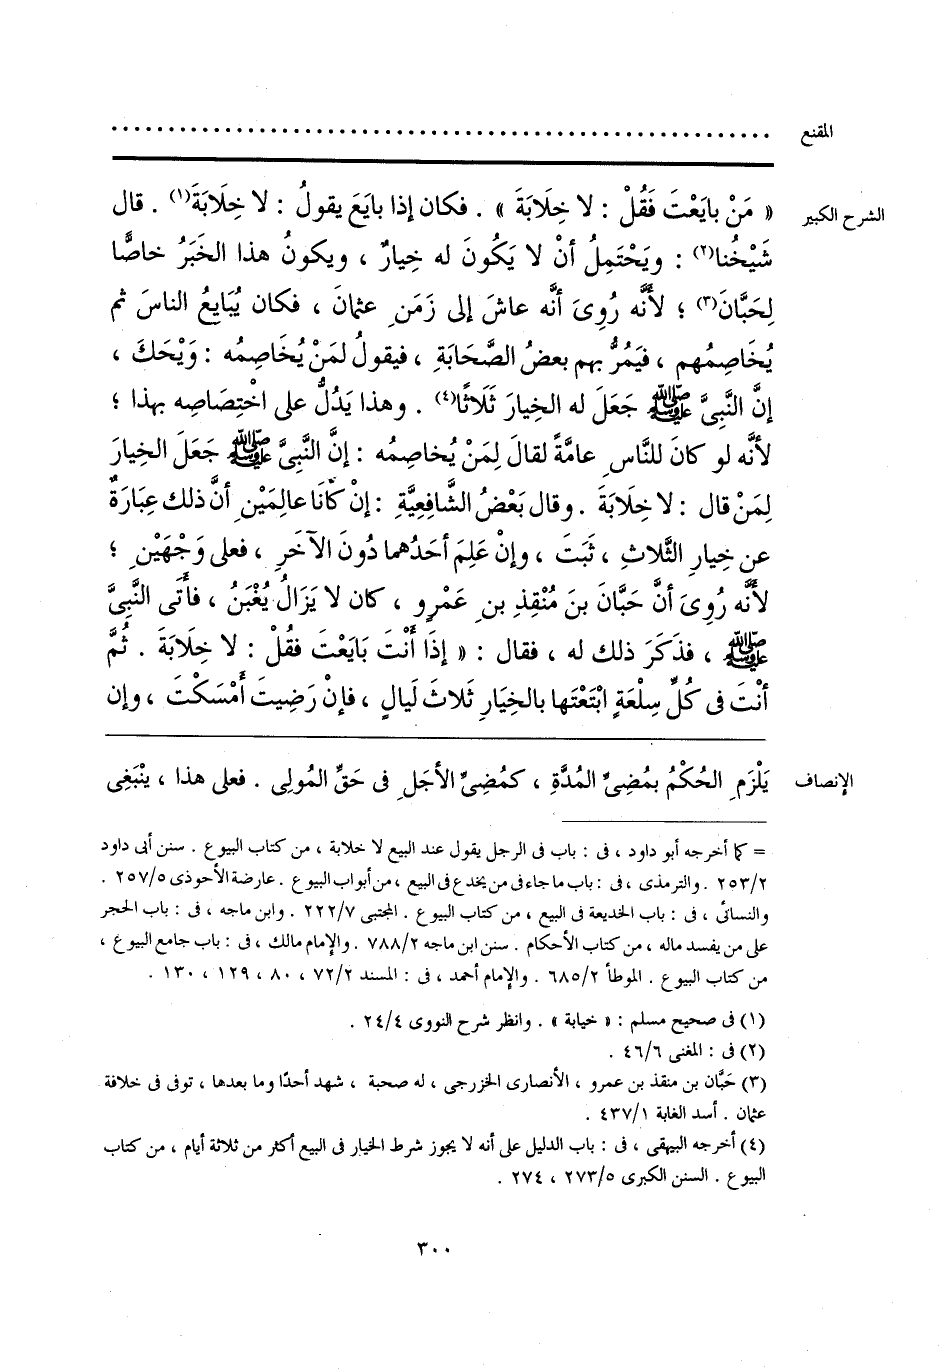 المقنع ............................................................
الشرح الكبير « مَنْ بايَعْتَ فَقُلْ : لا خِلَابَةَ » . فكان إذا بايَعَ يقولُ : لا خِلَابَةَ(١) . قال
شَيْخُنا(٢) : ويَحْتَمِلُ أنْ لا يَكُونَ له خِيارٌ ، ويكونُ هذا الخَبَرُ خاصًّا
لِحَبَّانَ(٣) ؛ لأنَّه رُوِىَ أنَّه عاشَ إلى زَمَنِ عثمانَ ، فكان يُبَايِعُ الناسَ ثم
يُخَاصِمُهم ، فيَمُرُّ بهم بعضُ الصَّحَابَةِ ، فيقولُ لمَنْ يُخَاصِمُه : وَيْحَكَ ،
إنَّ النَّبِىَّ ﷺ جَعَلَ له الخِيارَ ثَلَاثًا(٤) . وهذا يَدُلُّ على اخْتِصَاصِه بهذا ؛
لأنَّه لو كانَ للنَّاسِ عامَّةً لقالَ لِمَنْ يُخاصِمُه : إنَّ النَّبِىَّ ﷺ جَعَلَ الخِيارَ
لِمَنْ قال : لا خِلَابَةَ . وقال بَعْضُ الشَّافِعِيَّةِ : إنْ كَانَا عالِمَيْنِ أنَّ ذلك عِبَارَةٌ
عن خِيارِ الثَّلاثِ ، ثَبَتَ ، وإنْ عَلِمَ أحَدُهما دُونَ الآخَرِ ، فعلى وَجْهَيْنِ ؛
لأنَّه رُوِىَ أنَّ حَبَّانَ بنَ مُنْقِذِ بنِ عَمْرٍو ، كان لا يَزَالُ يُغْبَنُ ، فأَتَى النَّبِىَّ
ﷺ ، فذَكَرَ ذلك له ، فقال : « إذَا أنْتَ بَايَعْتَ فقُلْ : لا خِلَابَةَ . ثُمَّ
أنْتَ فى كُلِّ سِلْعَةٍ ابْتَعْتَها بالخِيَارِ ثَلاثَ لَيالٍ ، فإنْ رَضِيتَ أَمْسَكْتَ ، وإن
الإنصاف يَلْزَمِ الحُكْمُ بمُضِىِّ المُدَّةِ ، كمُضِىِّ الأجَلِ فى حَقِّ المُولِى . فعلى هذا ، ينْبَغِى
= كما أخرجه أبو داود ، فى : باب فى الرجل يقول عند البيع لا خلابة ، من كتاب البيوع . سنن أبى داود
٢٥٣/٢ . والترمذى ، فى : باب ما جاء فى من يخدع فى البيع ، من أبواب البيوع . عارضة الأحوذى ٢٥٧/٥ .
والنسائى ، فى : باب الخديعة فى البيع ، من كتاب البيوع . المجتبى ٢٢٢/٧ . وابن ماجه ، فى : باب الحجر
على من يفسد ماله ، من كتاب الأحكام . سنن ابن ماجه ٧٨٨/٢ . والإمام مالك ، فى : باب جامع البيوع ،
من كتاب البيوع . الموطأ ٦٨٥/٢ . والإمام أحمد ، فى : المسند ٧٢/٢ ، ٨٠ ، ١٢٩ ، ١٣٠ .
(١) فى صحيح مسلم : « خيابة » . وانظر شرح النووى ٢٤/٤ .
(٢) فى : المغنى ٤٦/٦ .
(٣) حَبَّان بن منقذ بن عمرو ، الأنصارى الخزرجى ، له صحبة ، شهد أحدًا وما بعدها ، توفى فى خلافة
عثمان . أسد الغابة ٤٣٧/١ .
(٤) أخرجه البيهقى ، فى : باب الدليل على أنه لا يجوز شرط الخيار فى البيع أكثر من ثلاثة أيام ، من كتاب
البيوع . السنن الكبرى ٢٧٣/٥ ، ٢٧٤ .
٣٠٠